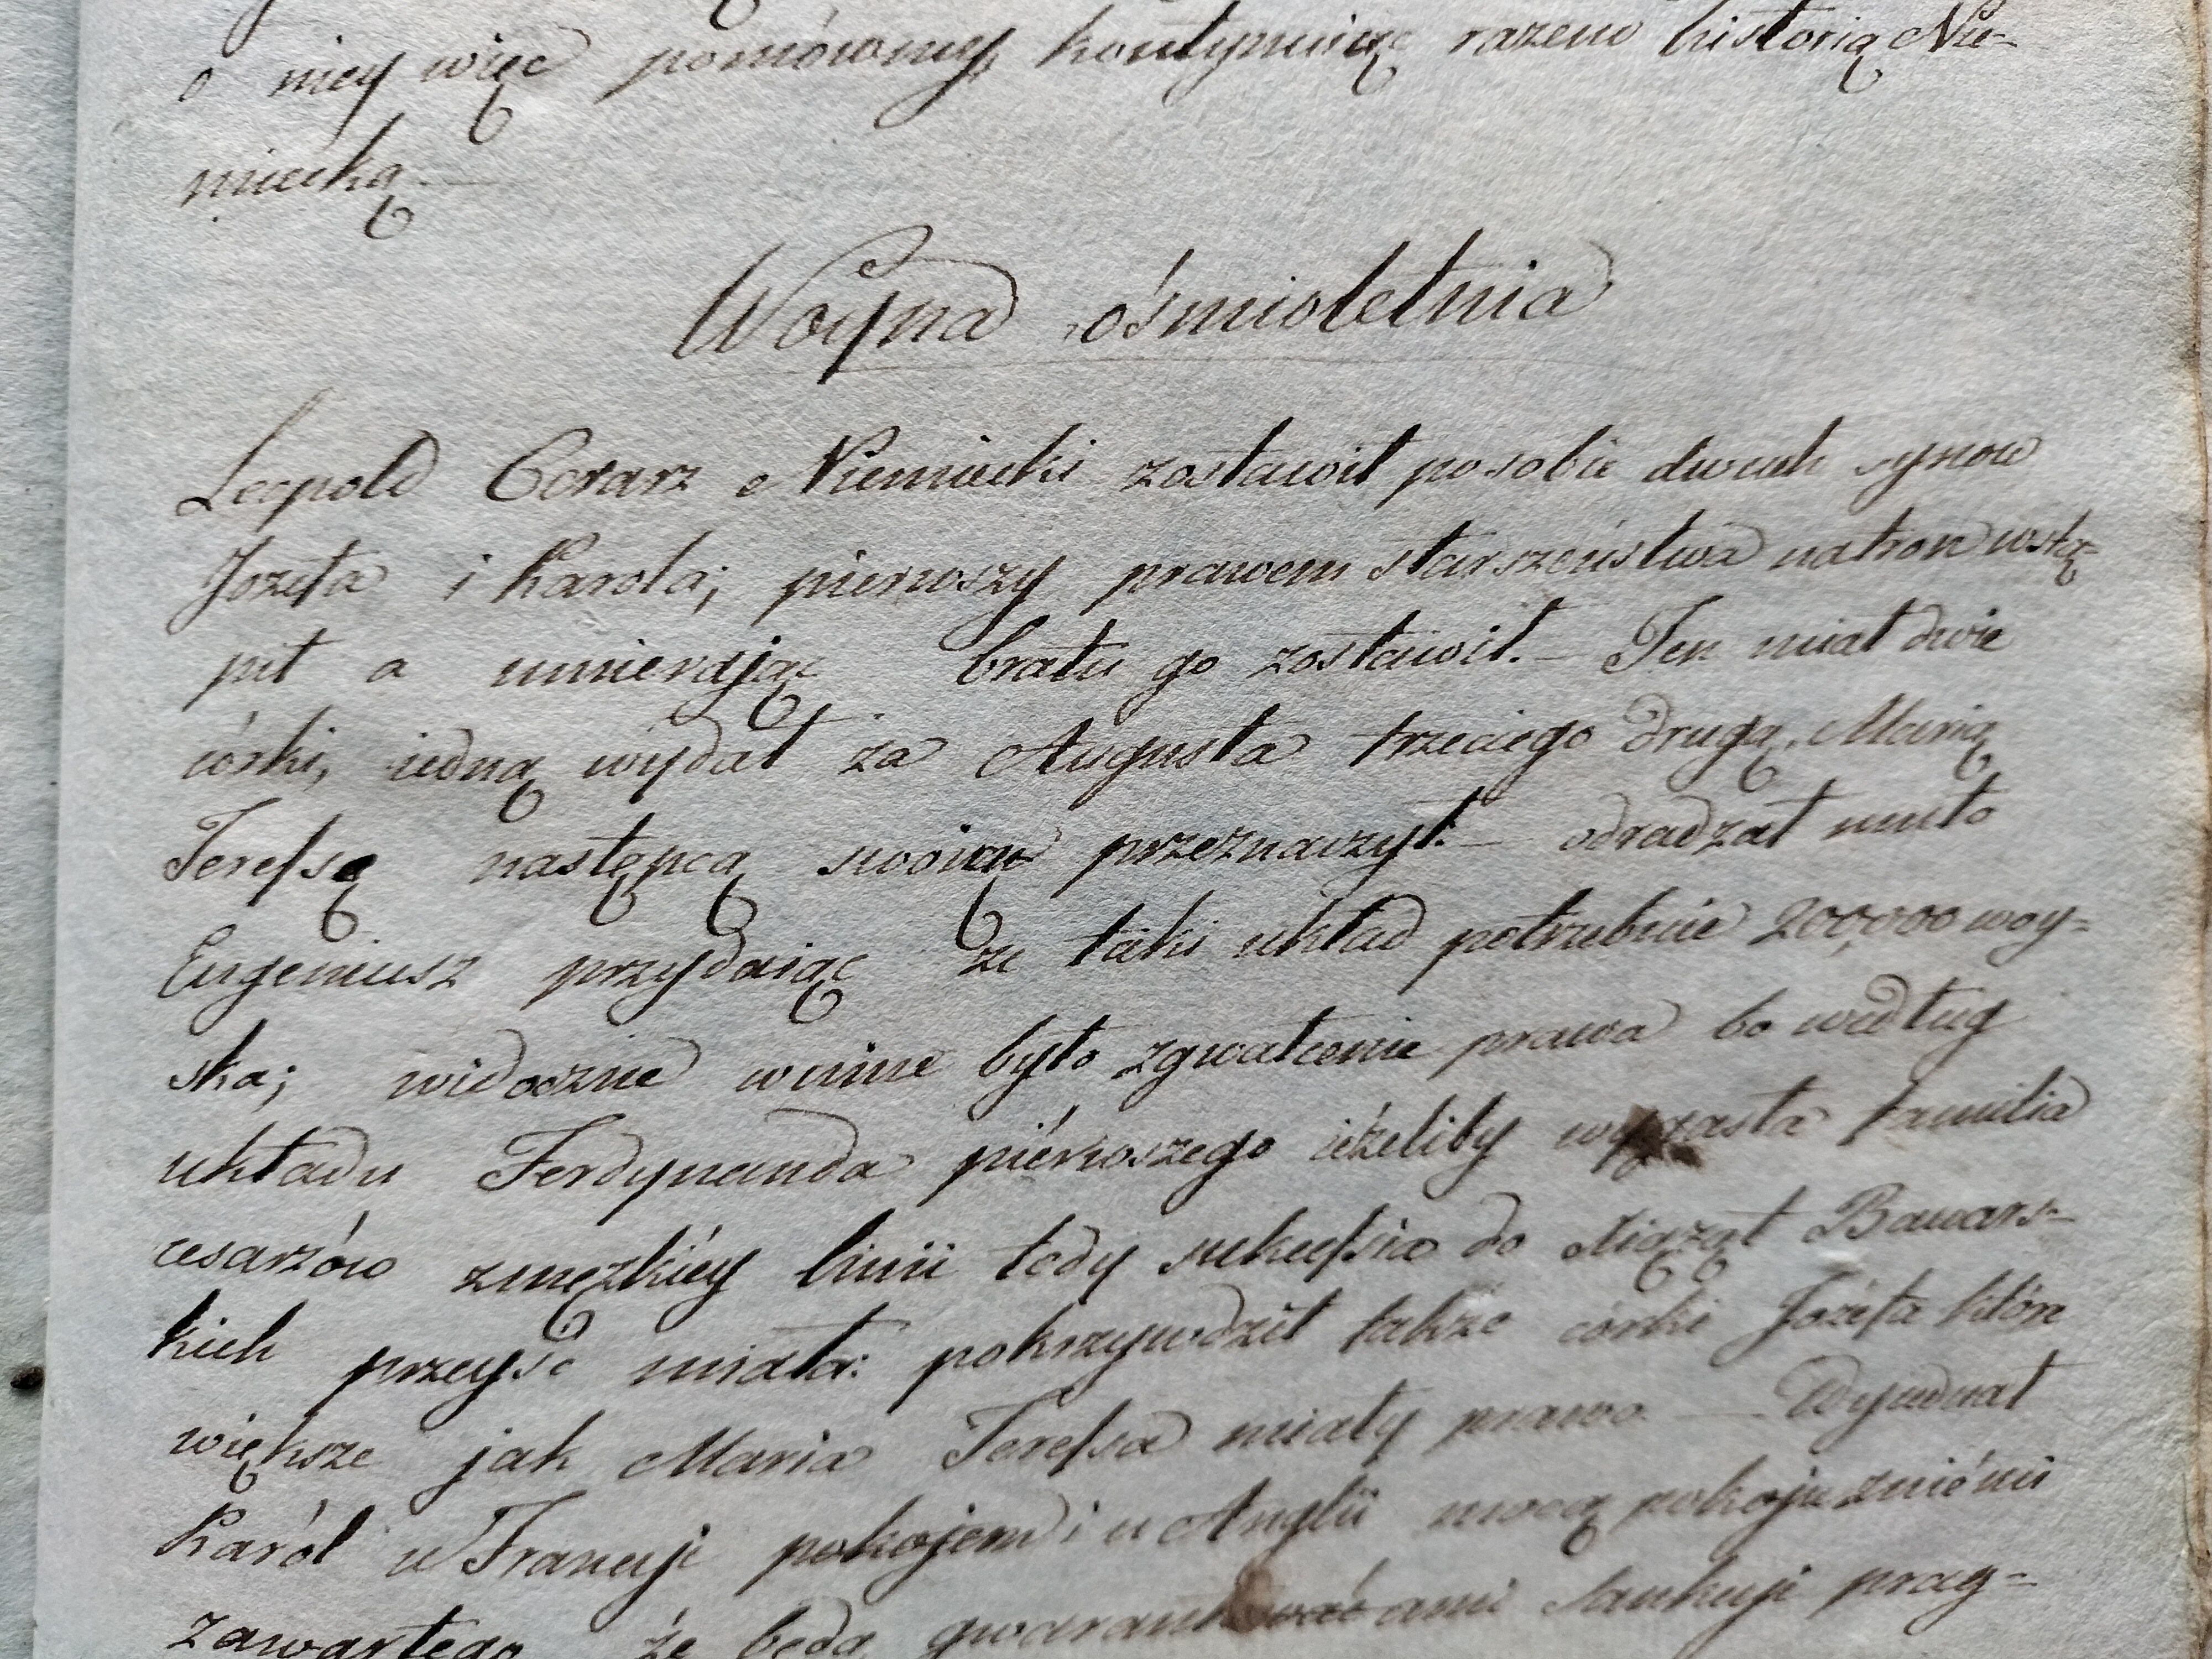 o niey więc pomówmy, kontynuiąc razem historią Nie-
miecką. —
Woyna ośmioletnia
Leopold Cesarz Niemiecki zostawił po sobie dwuch synow
Jozefa i Karola; pierwszy prawem starszeństwa na tron wstą-
pił a umierając bratu go zostawił. — Ten miał dwie
córki, iedną wydał za Augusta trzeciego drugą Marią
Teressę następcą swoią przeznaczył. — odradzał mu to
Eugeniusz przydaiąc że taki układ potrzebuie 200,000 woy-
ska; widoczne w nim było zgwałcenie prawa bo według
układu Ferdynanda piérwszego ieżeliby wygasła familia
cesarzów z męzkiéy linii tedy sukcessia do Xiążąt Bawars-
kich przeyść miała: pokrzywdził także córki Józefa które
większe jak Maria Teressa miały prawo. — Wyiednał
Karól u Francji pokojem i u Anglii mocą pokoju z niémi
zawartego że będą gwarantami sankcji prag-